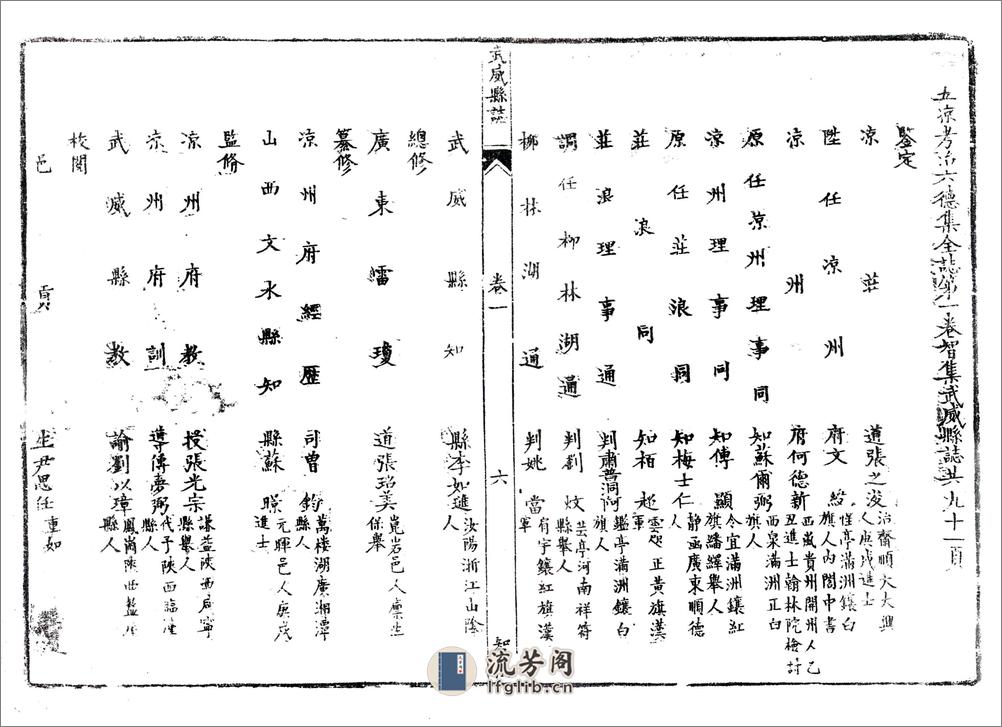 五凉考治六德集全誌第一卷智集武威縣誌共九十一頁
鍳定
凉莊道張之浚 治齋順天大興人庚戌進士
陞任凉州府文 惺亭滿洲鑲白旗人內閣中書
凉州府何德新 西嵐貴州開州人乙丑進士翰林院檢討
原任凉州理事同知蘇爾弼 西泉滿洲正白旗人
凉州理事同知傅顯 令宜滿洲鑲紅旗繙繹舉人
原任莊浪同知梅士仁 靜函廣東順德人
莊浪同知栢超 雲 正黃旗漢軍
莊浪理事通判肅普洞阿 鑑亭滿洲鑲白旗人
調任柳林湖通判劉炆 芸亭河南祥符縣舉人
柳林湖通判姚當 有宇鑲紅旗漢軍
武威縣誌
卷一
六
武威縣知縣李如璡 汝陽浙江山陰人
總修
廣東㠠瓊道張珆美 崑岩邑人廩生保舉
纂修
凉州府經歷司曾鈞 萬樓湖廣湘潭縣人
山西文水縣知縣蘇暻 元暉邑人庚戌進士
監脩
凉州府教授張光宗 謙益陝西咸寧縣舉人
凉州府訓導傅夢弼 代予陝西臨潼縣人
武威縣教諭劉以璋 鳳崗陝西藍 縣人
校閱
邑貢生尹思任 重如
流芳阁
lfglib.cn